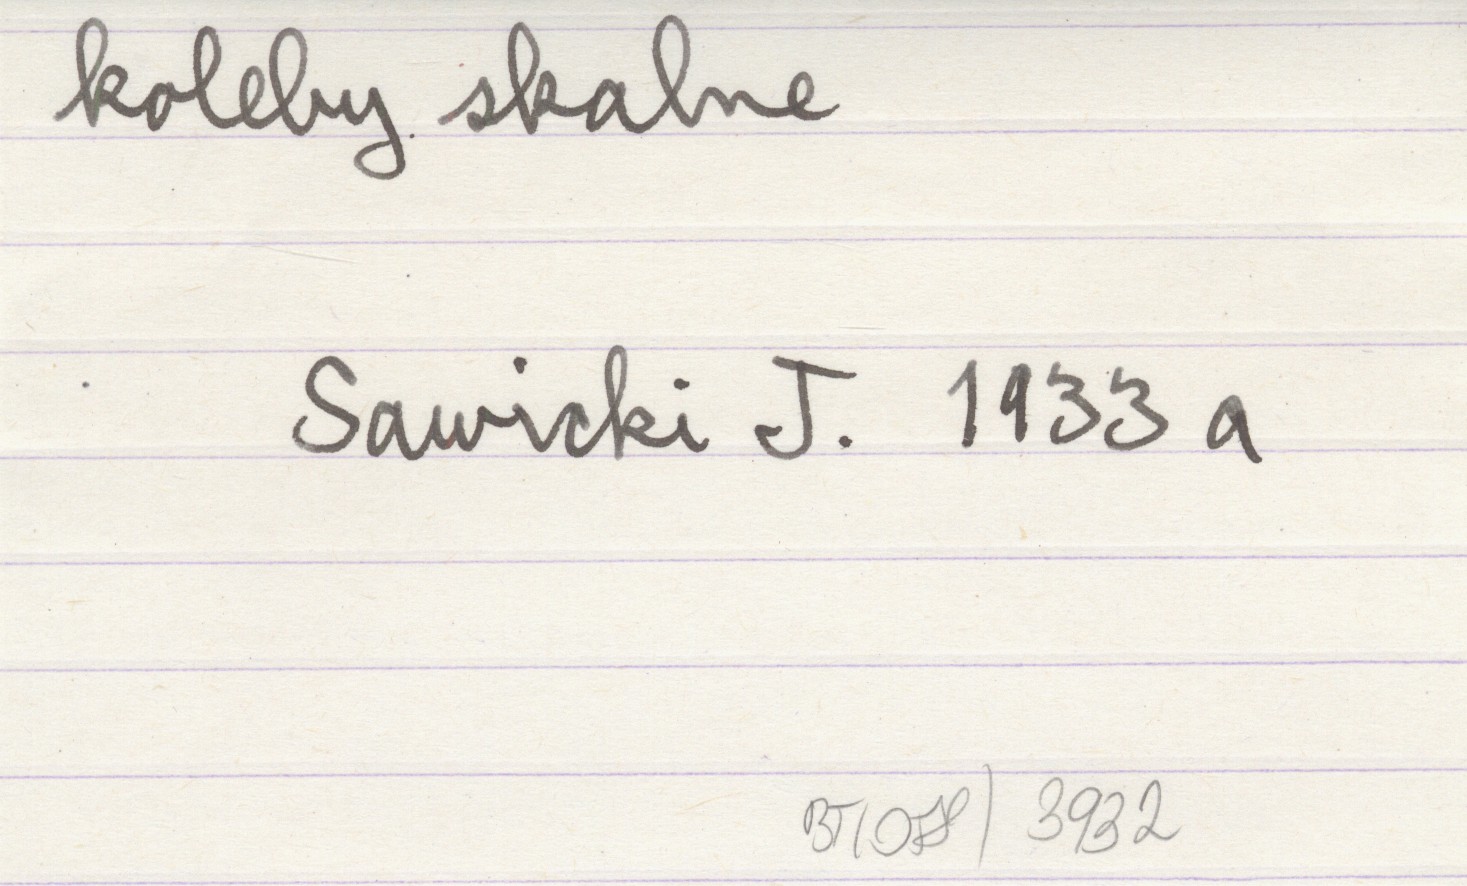 koleby skalne
Sawicki J. 1933 a
3932